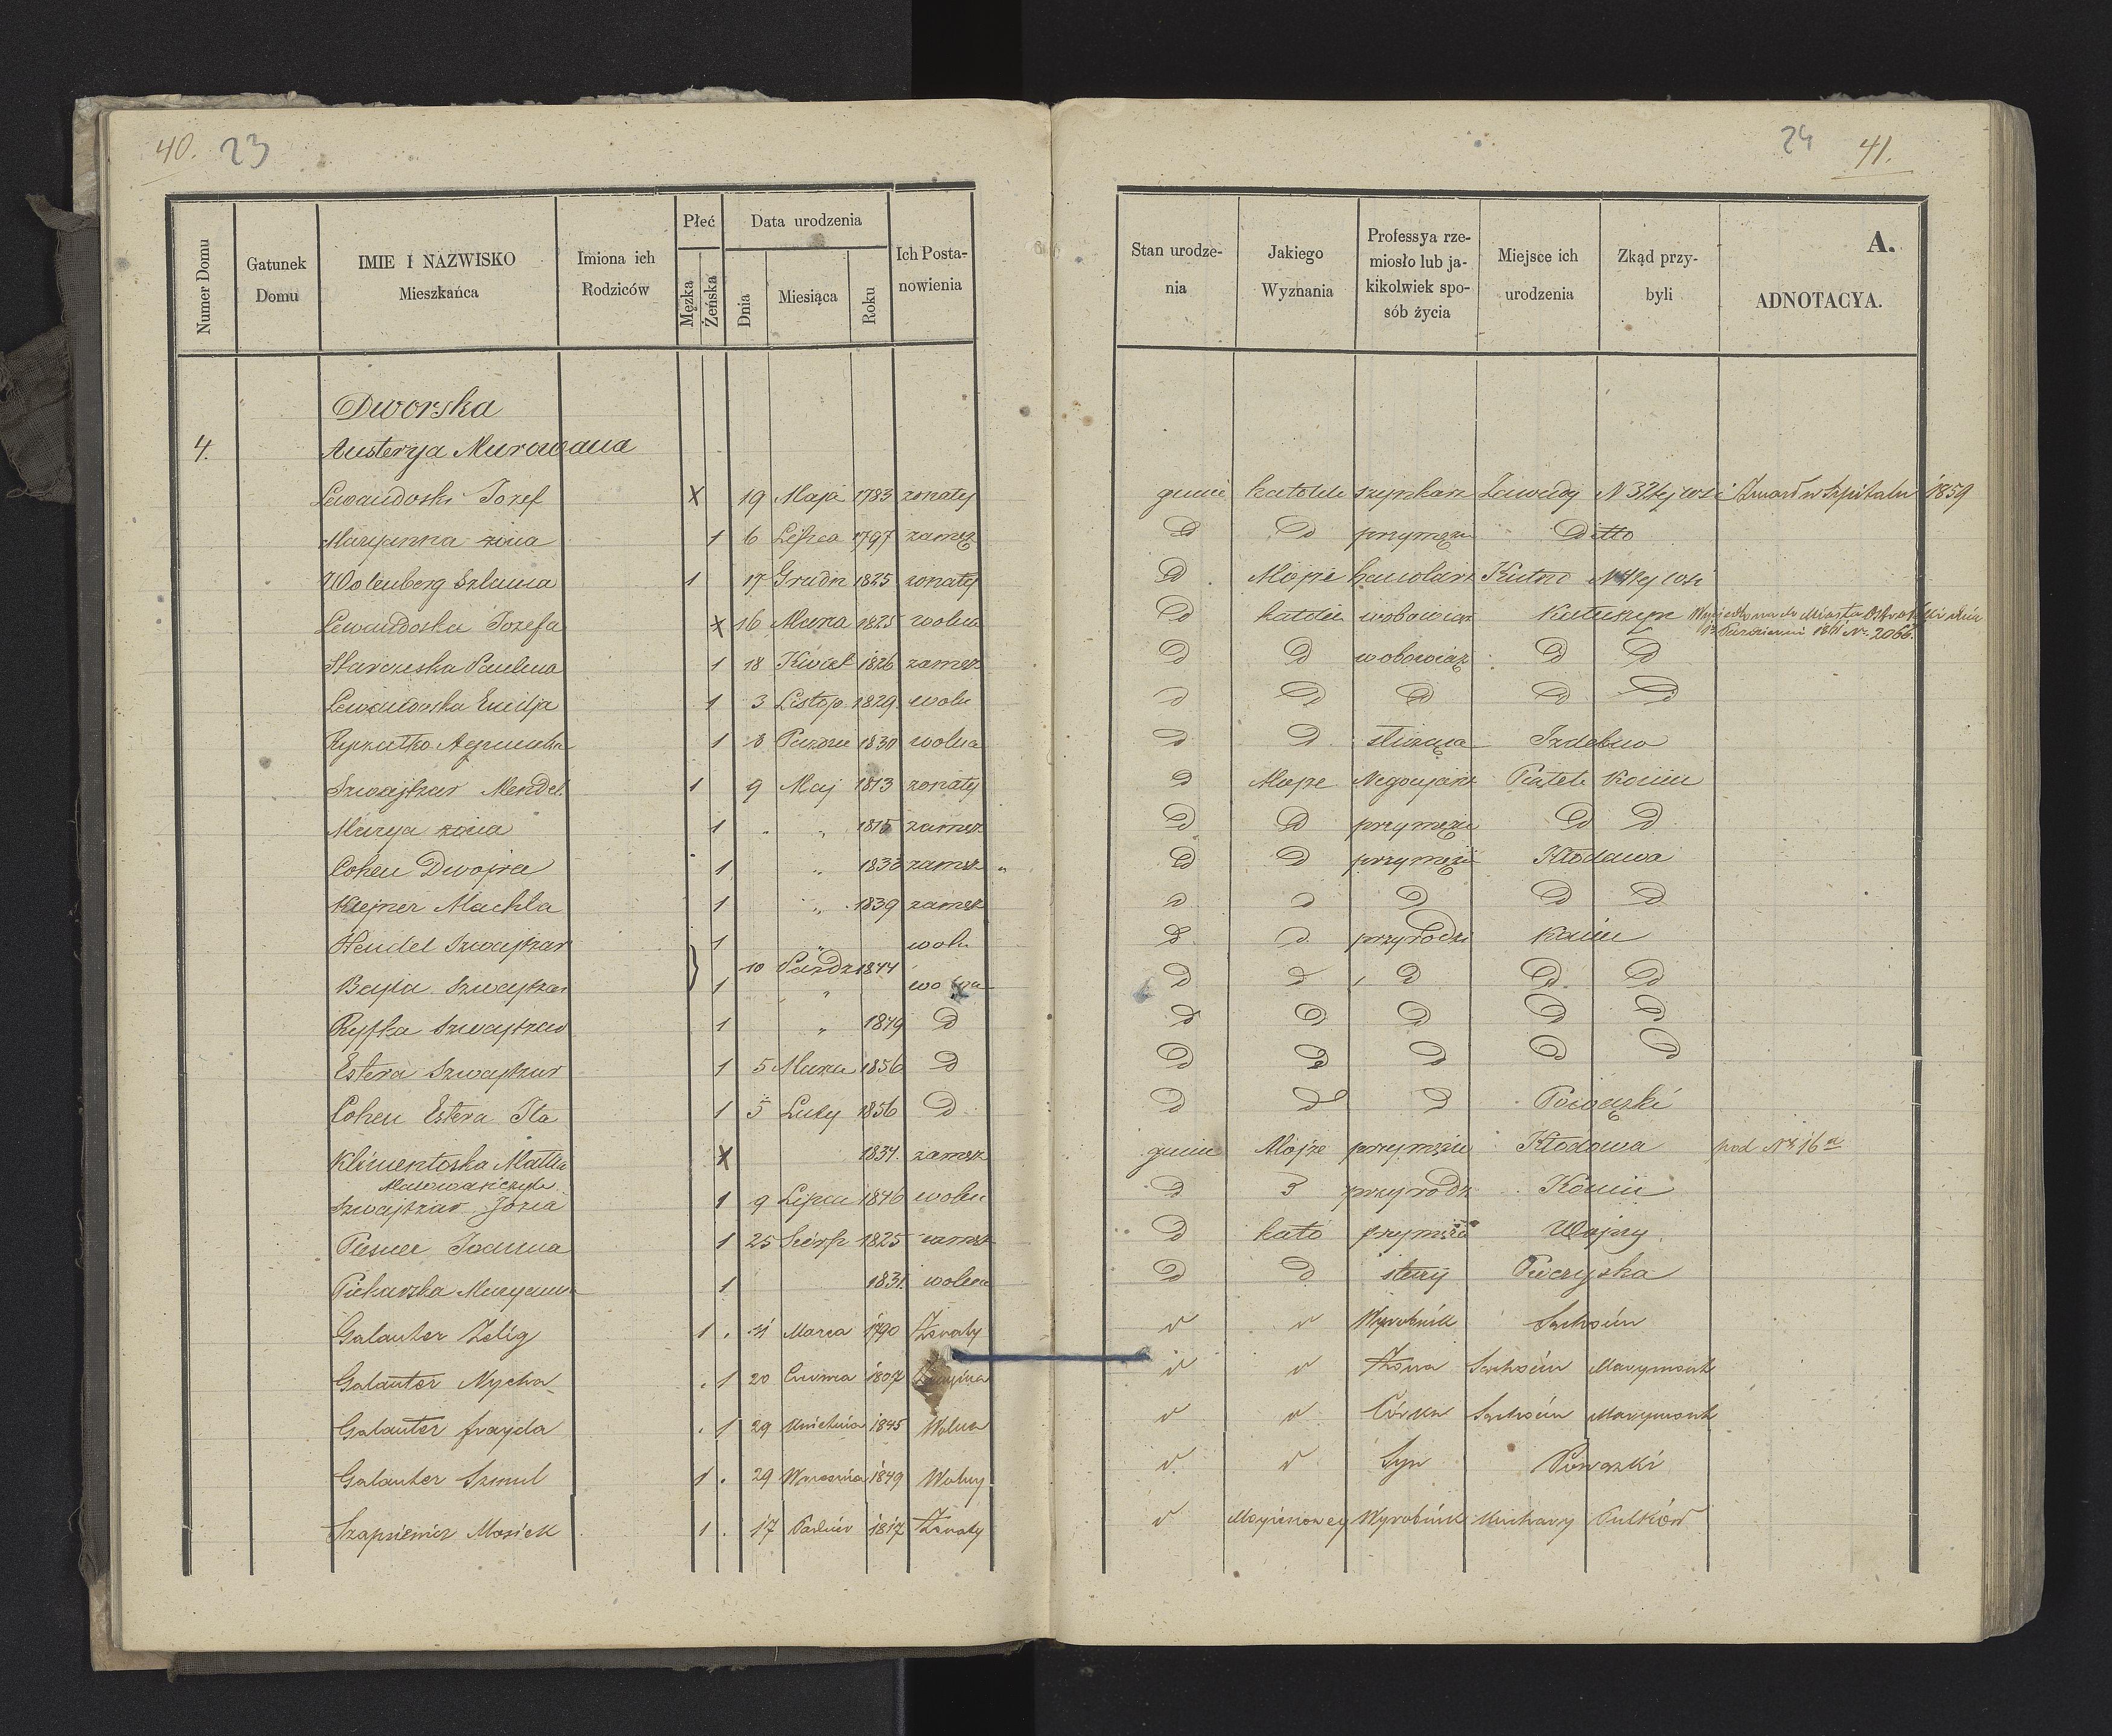 40. 23
Numer Domu | Gatunek Domu | IMIE I NAZWISKO Mieszkańca | Imiona ich Rodziców | Płeć Męzka Żeńska | Data urodzenia Dnia Miesiąca Roku | Ich Postanowienia
Dworska
4. Austerya Murowana
Lewandoski Jozef X 19 Maja 1783 zonaty
Maryanna zona 1 6 Lipca 1797 zamęz
Wolenberg Szlama 1 17 Grudn 1825 zonaty
Lewandoska Jozefa X 16 Marca 1825 wolna
Starczeska Paulina 1 18 Kwiet 1826 zamęz
Lewandoska Emilja 1 3 Listop 1829 woln
1 8 1830 wolna
Szwajkar Mendel 1 9 Maj 1813 zonaty
Marya zona 1 " 1815 zamęz
Cohen Dwojra 1 " 1833 zamęz
Klejner Machla 1 " 1839 zamęz
Hendel Szwajkar 1 " woln
10 Pazdz 1844
Bajla Szwajkar 1 " wolna
Ryfka Szwajkar 1 " 1849 D
Estera Szwajkar 1 5 Marca 1856 D
Cohen Estera Ita 1 5 Luty 1856 D
Klimentoska Matla X 1834. zamęz
Szwajkar Jozia 1 9 Lipca 1846 wolna
Joanna 1 25 Sierp 1825 zamęz
Piekarska Maryanna 1 1831. wolna
Galanter Zelig 1 . 11 Marca 1790 Żonaty
Galanter Nycha . 1 20 Czerwca 1807
Galanter frayda . 1 29 Kwietnia 1845 Wolna
Galanter Szmul 1 . 29 Września 1849 Wolny
Szapsiewicz Mosiek 1 . 17 Paźdier 1817 Żonaty
24 41.
Stan urodzenia | Jakiego Wyznania | Professya rzemiosło lub jakikolwiek sposób życia | Miejsce ich urodzenia | Zkąd przybyli | A. ADNOTACYA.
gmin katolik szynkarz Zawady N 3 tej wsi Zmarł w Szpitalu 1859
D D przymęzu Ditto
D Mojże Kutno tej wsi
D katolic Kałuszyn
No. 2066.
D D D D
D D D D D
D D służąca Izdebno
D Mojże Negocyant Piątek Konin
D D przymęzu D D
D D przymęzu Kłodawa
D D D D D
D D przyrodzi Konin
D D D D D
D D D D D
D D D D D
D D D Powązki
gmin Mojże przymęzu Kłodowa pod No 16 a
D D przyrodz Konin
D kato przymęzu
D D służy
v v Wyrobnik Sochocin
v v Żona Sochocin Marymont
v v Córka Sochocin Marymont
v v Syn Powązki
v Mojżeszowey Wyrobnik Kuchary Pulków